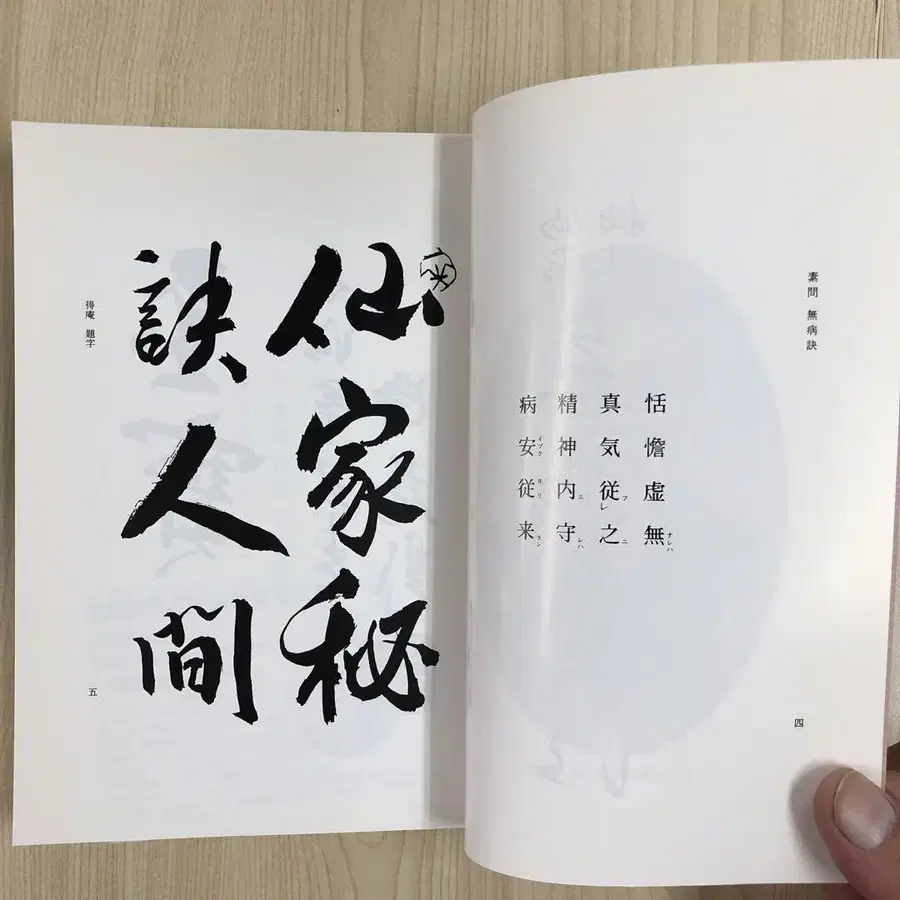 素問 無病訣
恬憺虚無ナレハ
真気従フレ之ニ
精神内ニ守レハ
病安イヅク従ヨリ来ラン
四
仙家秘
訣人間
得庵 題字
五